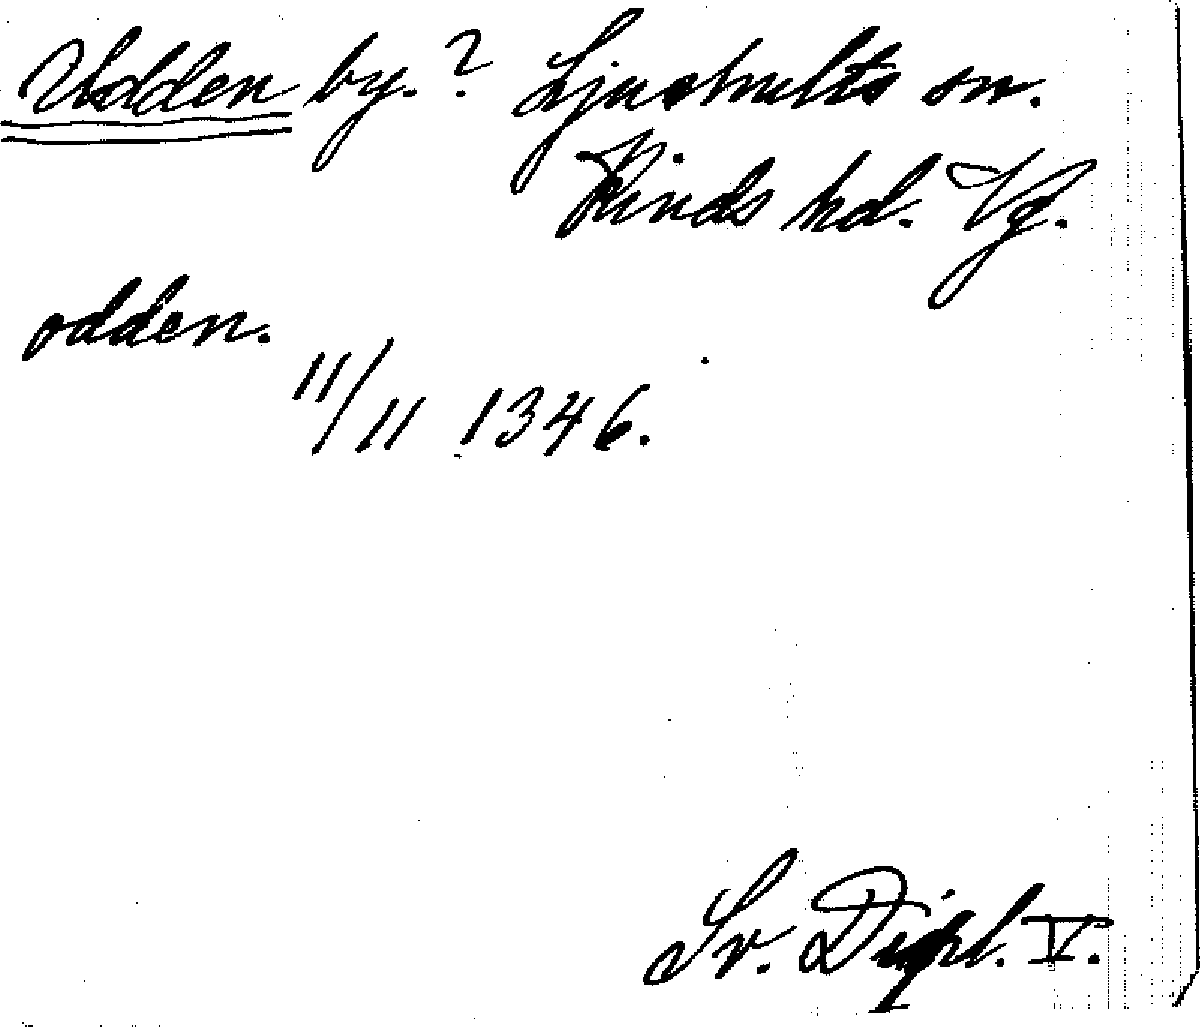 Udden by.? Ljushults sn.
Kinds hd. Vg.
odden.
11/11 1346.
Sv. Dipl. V.